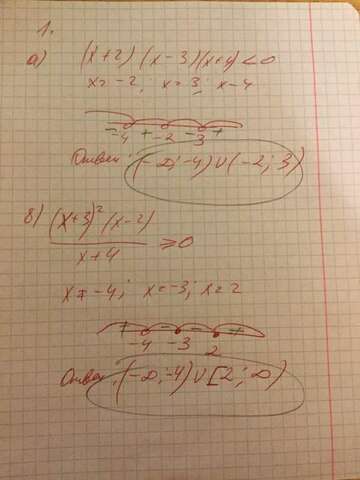 1.
а) (x+2)(x-3)(x+4)<0
x=-2; x=3; x-4
- + - +
-4 -2 3
Ответ: (-∞;-4)∪(-2;3)
б) (x+3)²(x-2)
x+4 ≥0
x≠-4; x=-3; x=2
+ - - +
-4 -3 2
Ответ: (-∞;-4)∪[2;∞)